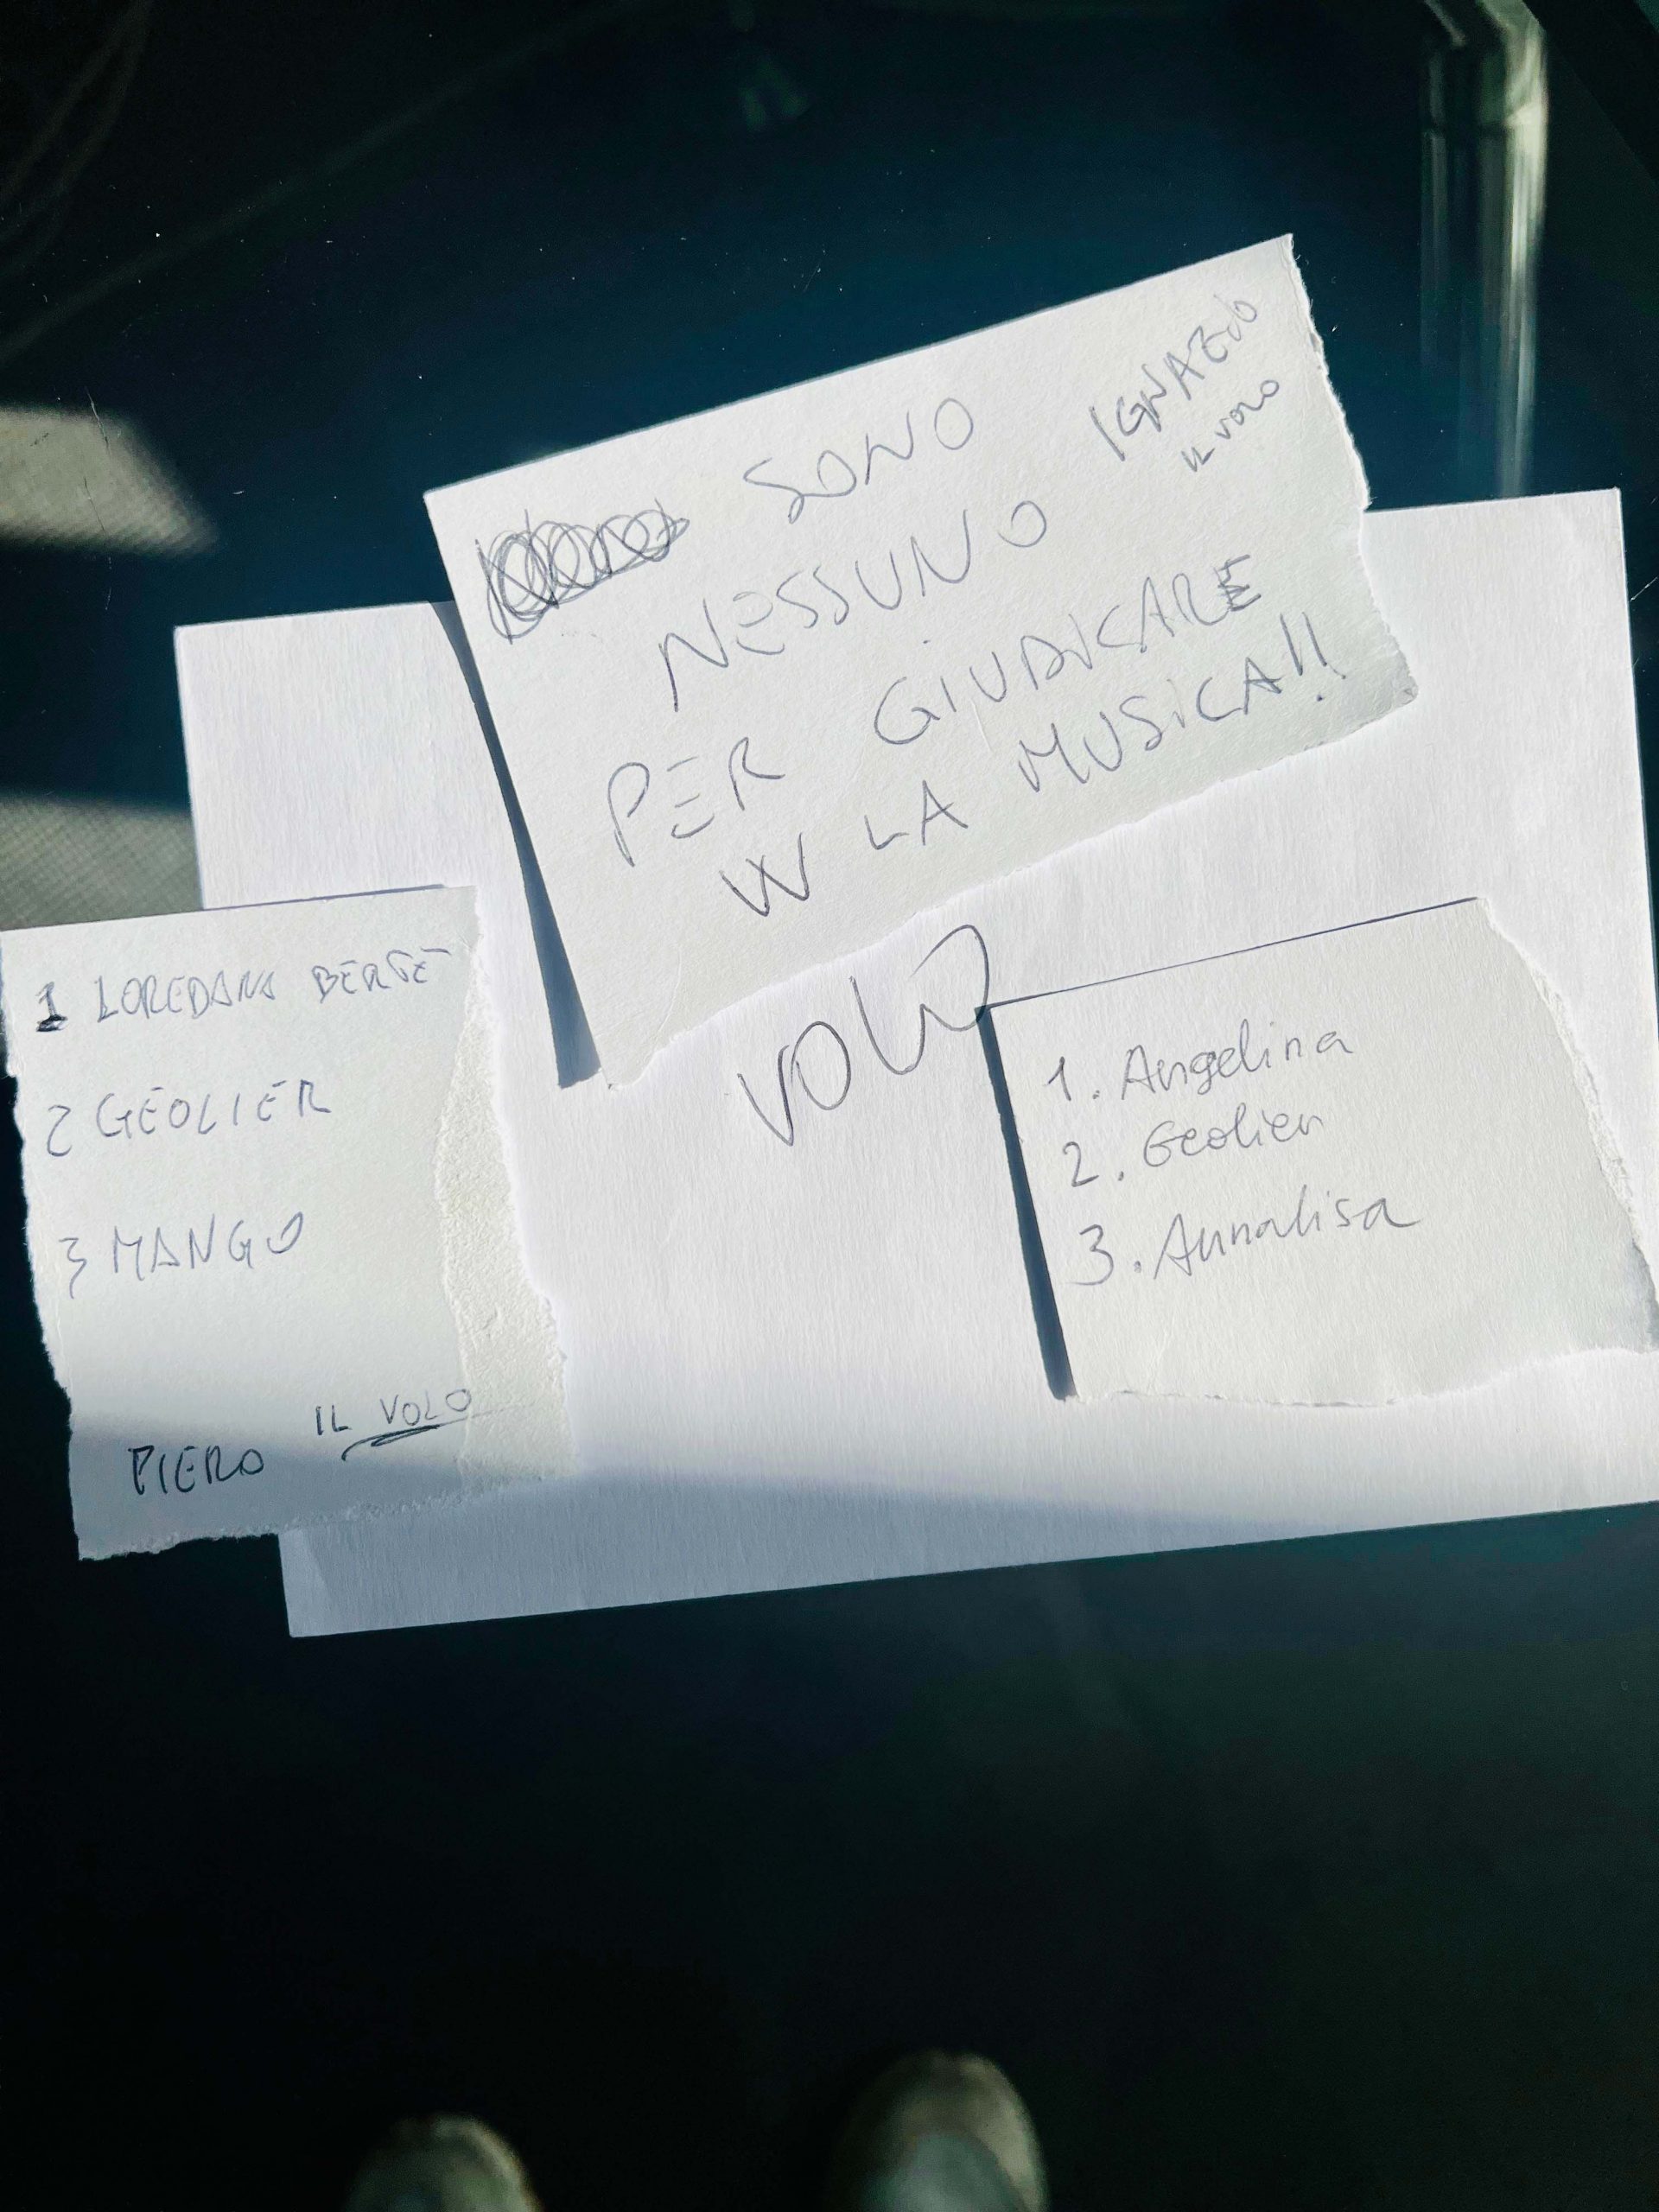 SONO
NESSUNO
PER GIUDICARE
W LA MUSICA!!
IGNAZIO
IL VOLO
1 LOREDANA BERTÈ
2 GEOLIER
3 MANGO
IL VOLO
PIERO
VOLO
1. Angelina
2. Geolier
3. Annalisa